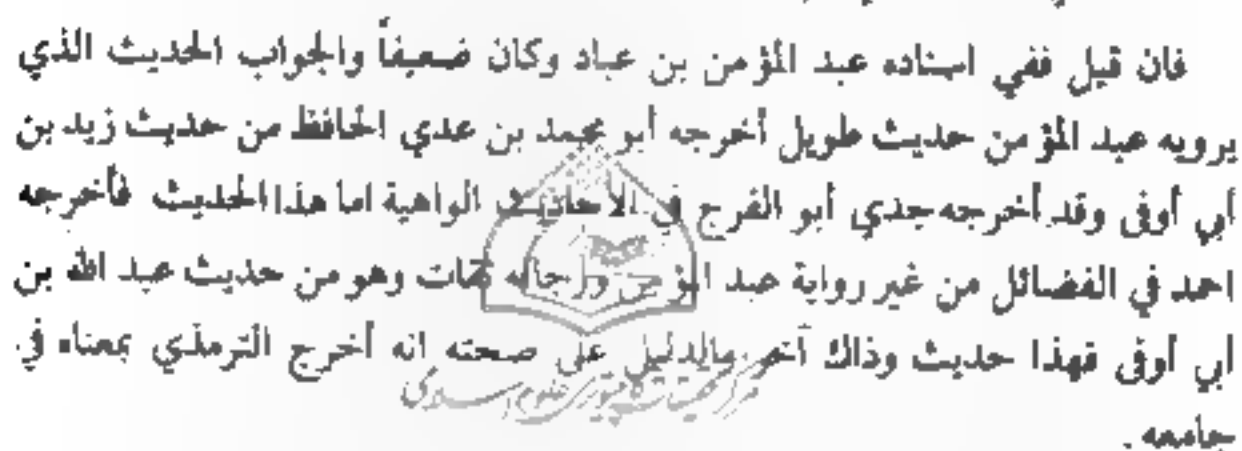 فان قيل ففي اسناده عبد المؤمن بن عباد وكان ضعيفاً والجواب الحديث الذي
يرويه عبد المؤمن حديث طويل أخرجه أبو محمد بن عدي الحافظ من حديث زيد بن
أبي أوفى وقد أخرجه جدي أبو الفرج في الأحاديث الواهية اما هذا الحديث فأخرجه
احمد في الفضائل من غير رواية عبد المؤمن ورجاله ثقات وهو من حديث عبد الله بن
أبي أوفى فهذا حديث وذاك آخر والدليل على صحته انه أخرج الترمذي بمعناه في
جامعه .